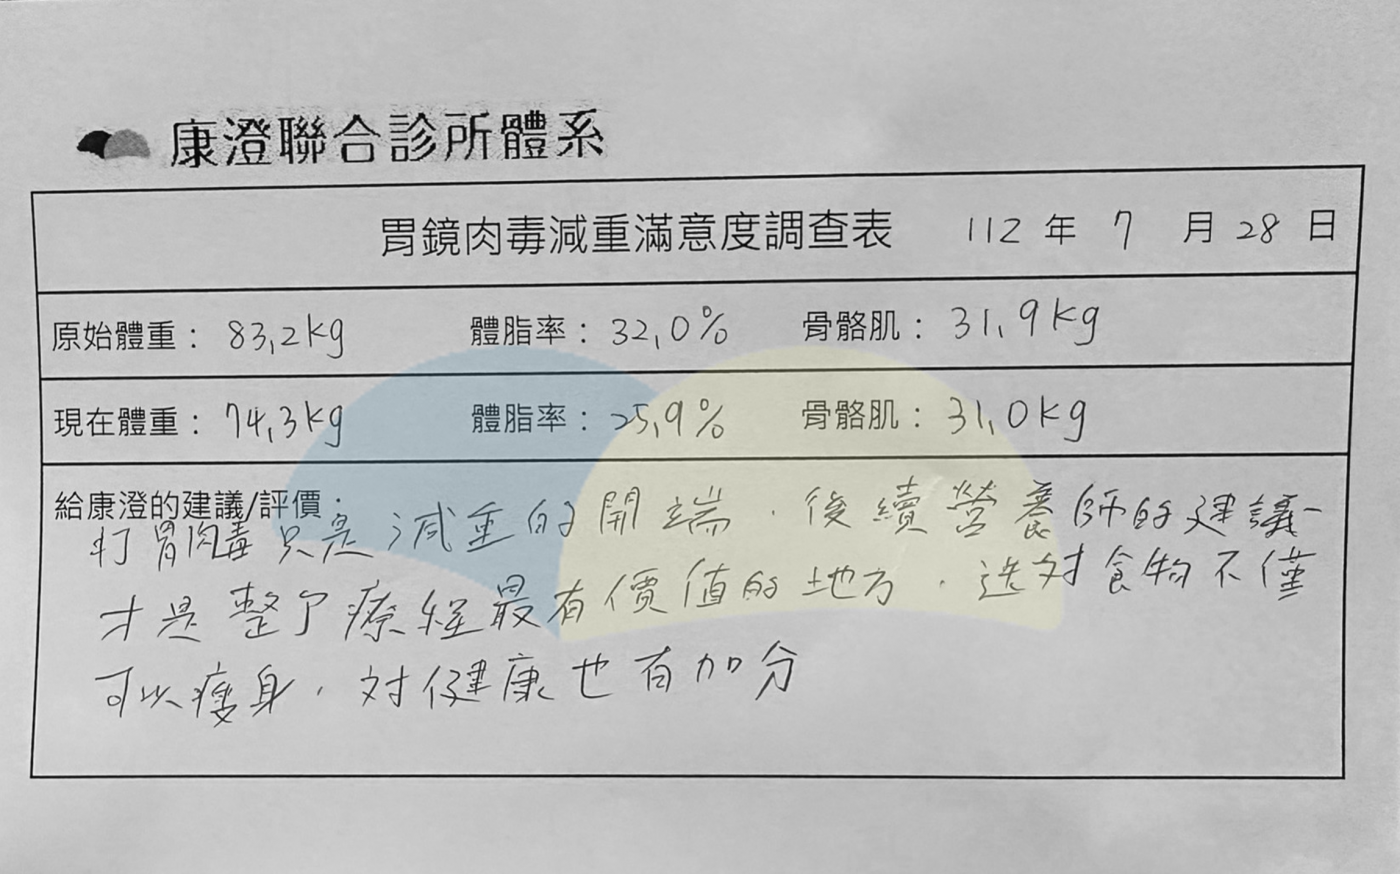 康澄聯合診所體系
胃鏡肉毒減重滿意度調查表 112 年 7 月 28 日
原始體重： 83,2kg 體脂率： 32,0% 骨骼肌： 31,9kg
現在體重： 74,3kg 體脂率： 25,9% 骨骼肌： 31,0kg
給康澄的建議/評價：
打胃肉毒只是減重的開端，後續營養師的建議
才是整個療程最有價值的地方，选对食物不僅
可以瘦身，对健康也有加分